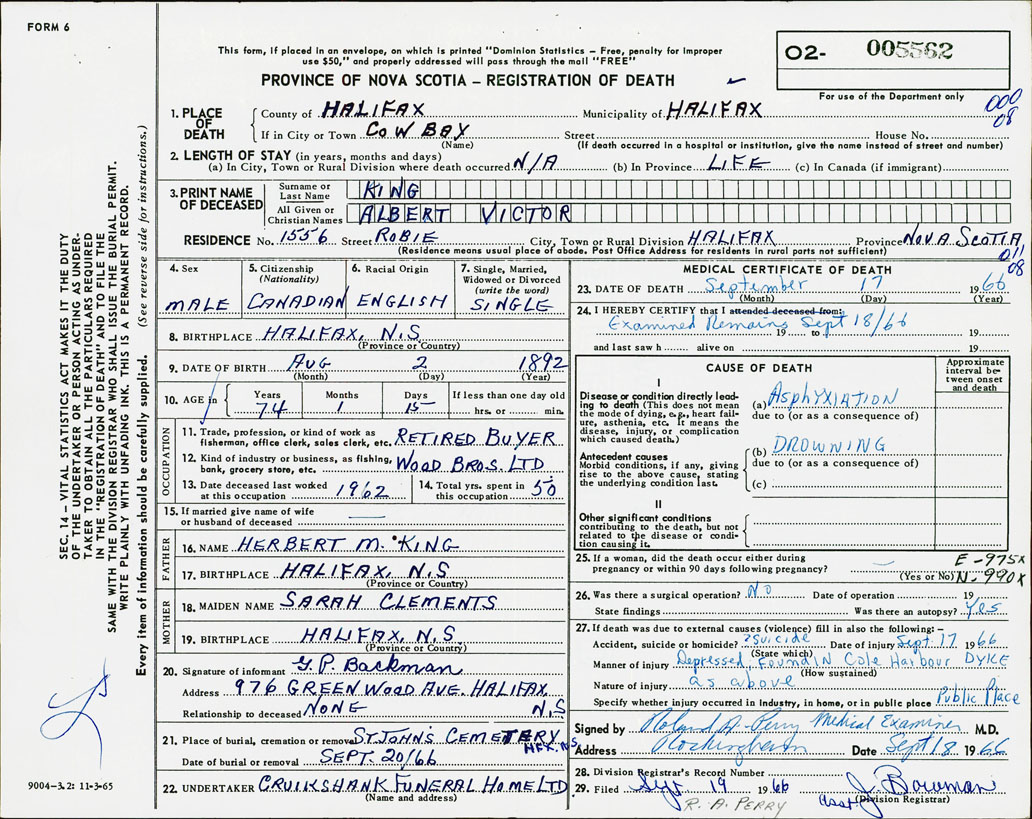 FORM 6
This form, if placed in an envelope, on which is printed "Dominion Statistics – Free, penalty for improper
use $50," and properly addressed will pass through the mail "FREE"
PROVINCE OF NOVA SCOTIA – REGISTRATION OF DEATH
O2- 005562
For use of the Department only
000
08
1. PLACE OF DEATH
County of HALIFAX Municipality of HALIFAX
If in City or Town COW BAY Street House No.
(Name) (If death occurred in a hospital or institution, give the name instead of street and number)
2. LENGTH OF STAY (in years, months and days)
(a) In City, Town or Rural Division where death occurred N/A (b) In Province LIFE (c) In Canada (if immigrant)
3. PRINT NAME OF DECEASED
Surname or Last Name KING
All Given or Christian Names ALBERT VICTOR
RESIDENCE No. 1556 Street ROBIE City, Town or Rural Division HALIFAX Province NOVA SCOTIA
(Residence means usual place of abode. Post Office Address for residents in rural parts not sufficient)
011
08
4. Sex
MALE
5. Citizenship
(Nationality)
CANADIAN
6. Racial Origin
ENGLISH
7. Single, Married,
Widowed or Divorced
(write the word)
SINGLE
8. BIRTHPLACE HALIFAX, N.S.
(Province or Country)
9. DATE OF BIRTH AUG 2 1892
(Month) (Day) (Year)
10. AGE in Years Months Days If less than one day old
74 1 15 hrs. or min.
OCCUPATION
11. Trade, profession, or kind of work as
fisherman, office clerk, sales clerk, etc. RETIRED BUYER
12. Kind of industry or business, as fishing,
bank, grocery store, etc. WOOD BROS. LTD
13. Date deceased last worked
at this occupation 1962
14. Total yrs. spent in
this occupation 50
15. If married give name of wife
or husband of deceased
FATHER
16. NAME HERBERT M. KING
17. BIRTHPLACE HALIFAX, N.S
(Province or Country)
MOTHER
18. MAIDEN NAME SARAH CLEMENTS
19. BIRTHPLACE HALIFAX, N.S.
(Province or Country)
20. Signature of informant G.P. Backman
Address 976 GREENWOOD AVE. HALIFAX
N.S
Relationship to deceased NONE
21. Place of burial, cremation or removal ST JOHN'S CEMETERY
HFX. N.S
Date of burial or removal SEPT. 20/66
22. UNDERTAKER CRUIKSHANK FUNERAL HOME LTD
(Name and address)
MEDICAL CERTIFICATE OF DEATH
23. DATE OF DEATH September 17 1966
(Month) (Day) (Year)
24. I HEREBY CERTIFY that I attended deceased from:
Examined Remains Sept 18/66
19 to 19
and last saw h alive on 19
CAUSE OF DEATH
Approximate
interval be-
tween onset
and death
I
Disease or condition directly lead-
ing to death (This does not mean
the mode of dying, e.g., heart fail-
ure, asthenia, etc. It means the
disease, injury, or complication
which caused death.)
(a) ASPHYXIATION
due to (or as a consequence of)
Antecedent causes
Morbid conditions, if any, giving
rise to the above cause, stating
the underlying condition last.
(b) DROWNING
due to (or as a consequence of)
(c)
II
Other significant conditions
contributing to the death, but not
related to the disease or condi-
tion causing it.
25. If a woman, did the death occur either during
pregnancy or within 90 days following pregnancy?
(Yes or No)
E-975x
N-990x
26. Was there a surgical operation? No Date of operation 19
State findings Was there an autopsy? Yes
27. If death was due to external causes (violence) fill in also the following: –
Accident, suicide or homicide? ?Suicide Date of injury Sept. 17 1966
(State which)
Manner of injury Depressed, Found IN Cole Harbour DYKE
(How sustained)
Nature of injury as above
Specify whether injury occurred in industry, in home, or in public place Public Place
Signed by Roland A. Perry Medical Examiner M.D.
Address Rockingham Date Sept 18 1966
28. Division Registrar's Record Number
29. Filed Sept 19 1966 J. Bowman
R. A. PERRY Asst. (Division Registrar)
SEC. 14 – VITAL STATISTICS ACT MAKES IT THE DUTY
OF THE UNDERTAKER OR PERSON ACTING AS UNDER-
TAKER TO OBTAIN ALL THE PARTICULARS REQUIRED
IN THE "REGISTRATION OF DEATH" AND TO FILE THE
SAME WITH THE DIVISION REGISTRAR WHO SHALL ISSUE THE BURIAL PERMIT.
WRITE PLAINLY WITH UNFADING INK. THIS IS A PERMANENT RECORD.
Every item of information should be carefully supplied. (See reverse side for instructions.)
9004-3.2: 11-3-65